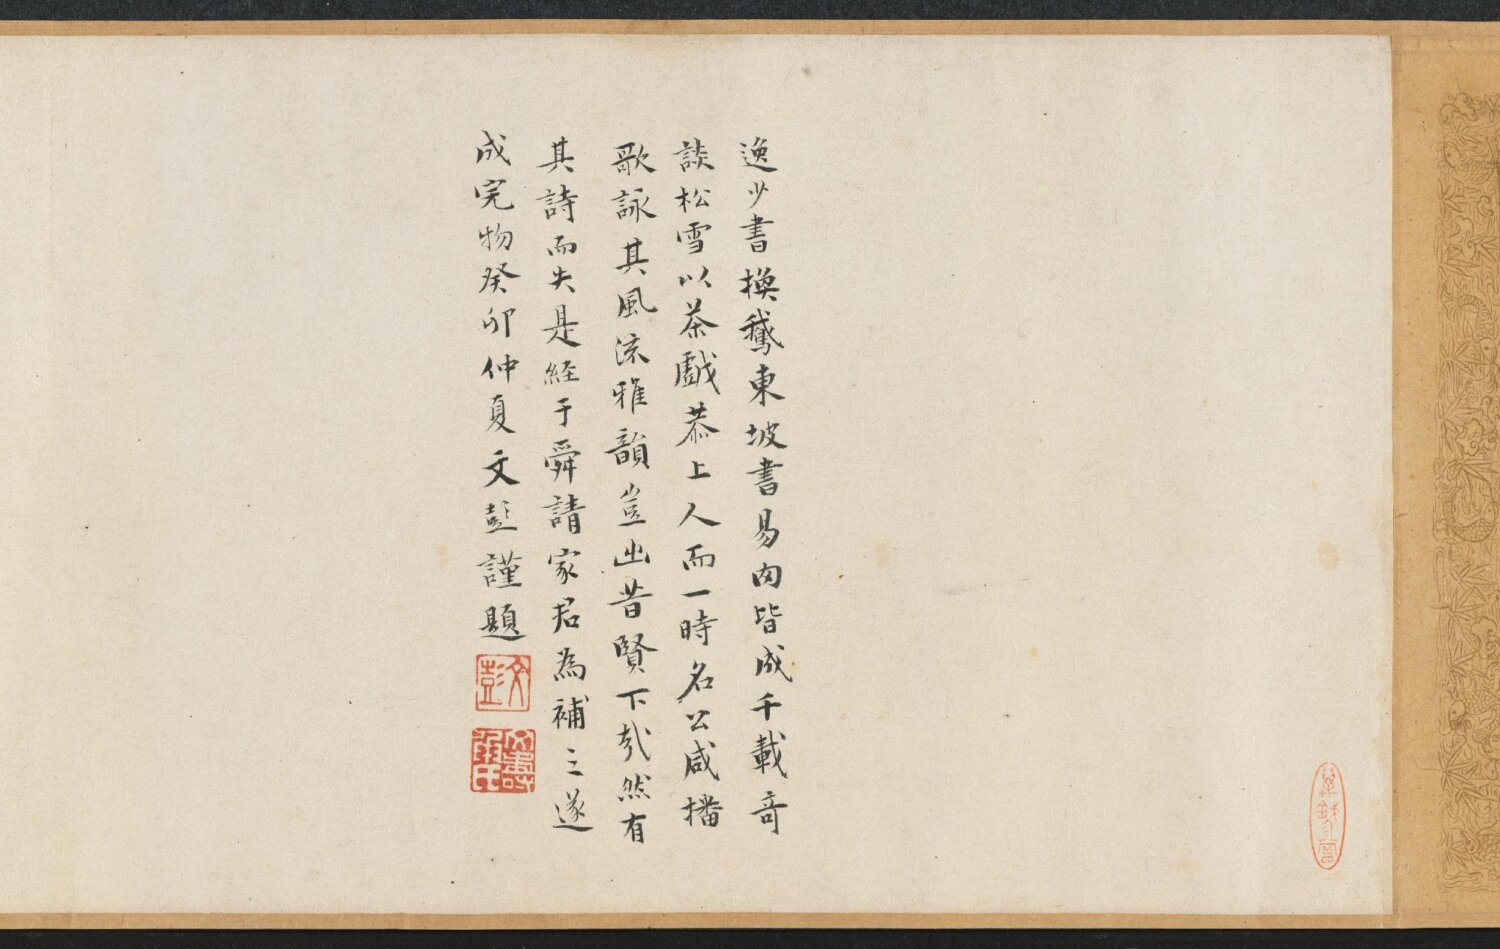 逸少書換鵞東坡書易肉皆成千載竒
談松雪以茶戲恭上人而一時名公咸播
歌詠其風流雅韻豈出昔賢下哉然有
其詩而失是経于舜請家君為補之遂
成完物癸卯仲夏文彭謹題
文彭
文壽承氏